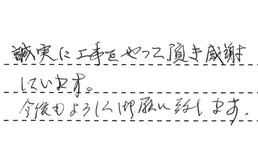 誠実に工事をやって頂き感謝
しています。
今後もよろしく御願い致します。